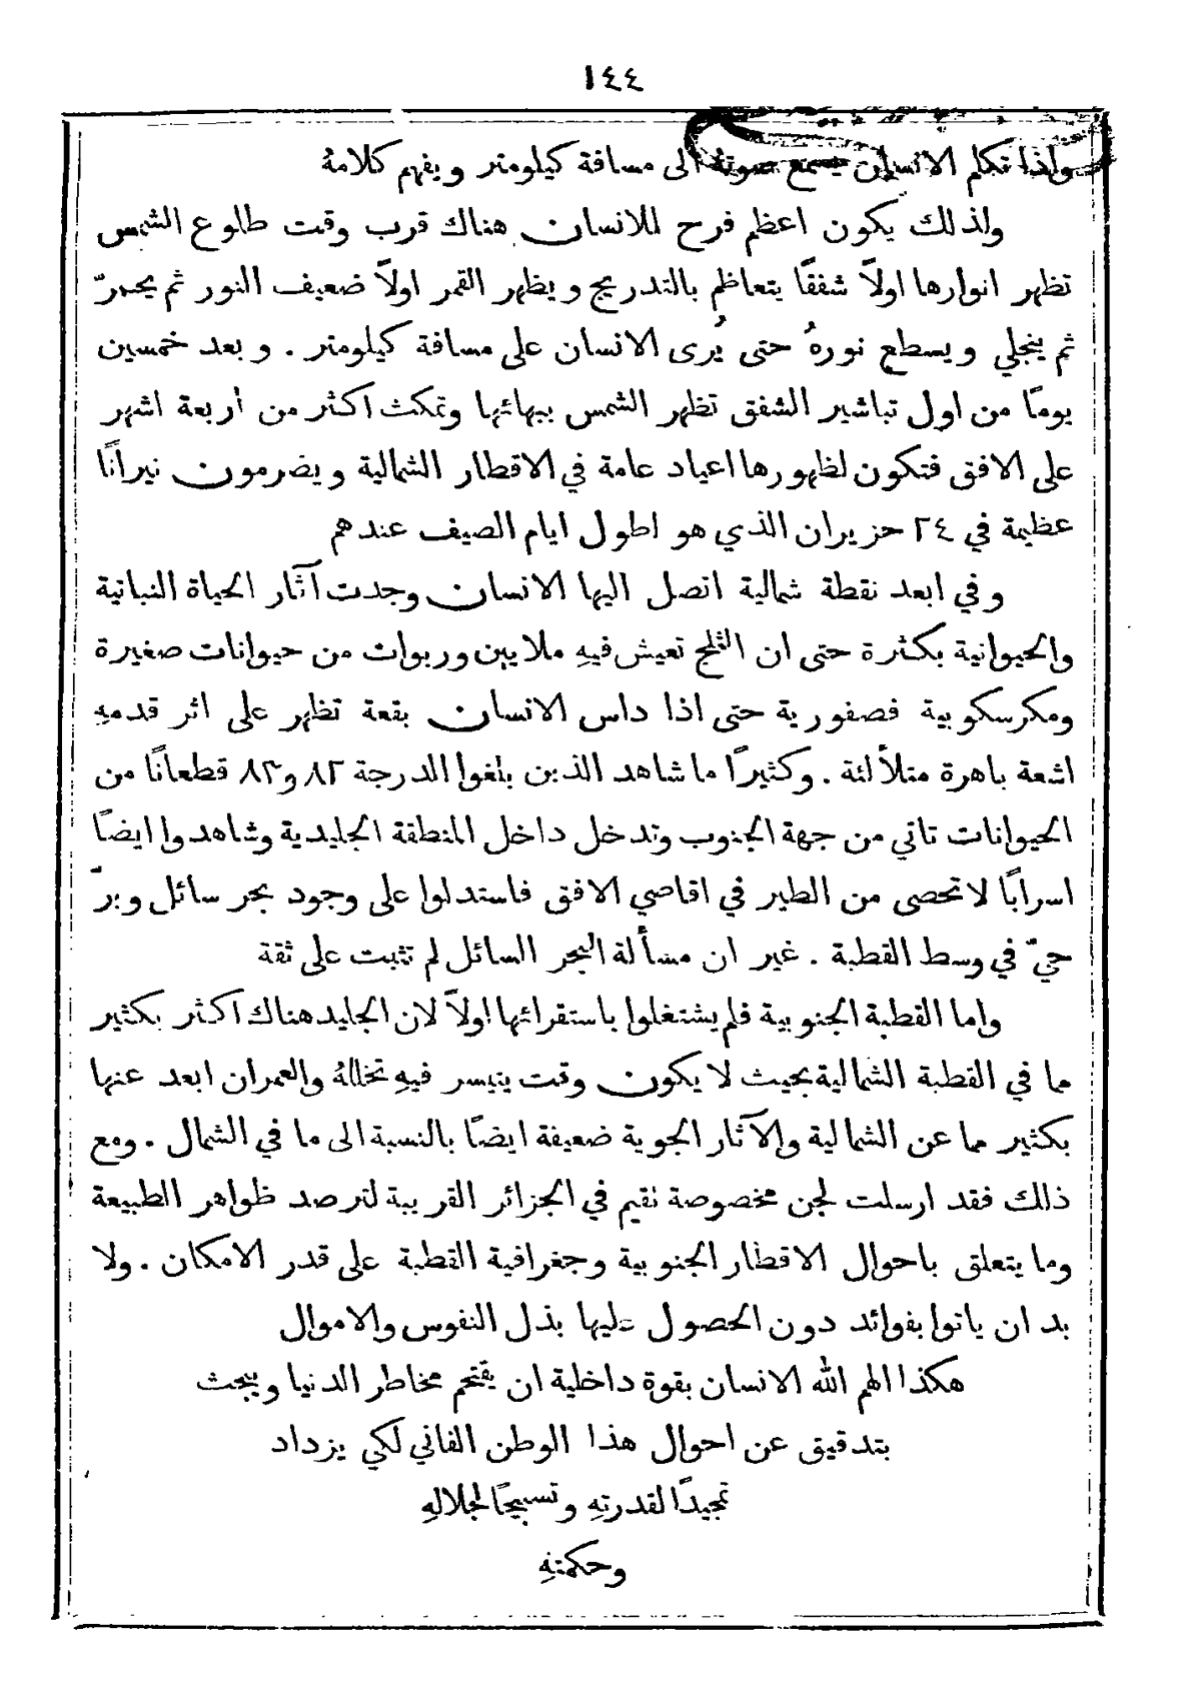 ١٤٤
واذا تكلم الانسان يسمع صوته الى مسافة كيلومتر ويفهم كلامهُ
ولذلك يكون اعظم فرح للانسان هناك قرب وقت طلوع الشمس
تظهر انوارها اولاً شفقًا يتعاظم بالتدريج ويظهر القمر اولاً ضعيف النور ثم يحمرّ
ثم ينجلي ويسطع نورهُ حتى يُرى الانسان على مسافة كيلومتر . وبعد خمسين
يومًا من اول تباشير الشفق تظهر الشمس ببهائها وتمكث اكثر من اربعة اشهر
على الافق فتكون لظهورها اعياد عامة في الاقطار الشمالية ويضرمون نيرانًا
عظيمة في ٢٤ حزيران الذي هو اطول ايام الصيف عندهم
وفي ابعد نقطة شمالية اتصل اليها الانسان وجدت آثار الحياة النباتية
والحيوانية بكثرة حتى ان الثلج تعيش فيهِ ملايين وربوات من حيوانات صغيرة
ومكرسكوبية فصفورية حتى اذا داس الانسان بقعة تظهر على اثر قدمهِ
اشعة باهرة متلألئة . وكثيرًا ما شاهد الذين بلغوا الدرجة ٨٢ و٨٣ قطعانًا من
الحيوانات تاتي من جهة الجنوب وتدخل داخل المنطقة الجليدية وشاهدوا ايضًا
اسرابًا لا تحصى من الطير في اقاصي الافق فاستدلوا على وجود بحر سائل وبرّ
حيّ في وسط القطبة . غير ان مسألة البحر السائل لم تثبت على ثقة
واما القطبة الجنوبية فلم يشتغلوا باستقرائها اولاً لان الجليد هناك اكثر بكثير
مما في القطبة الشمالية بحيث لا يكون وقت يتيسر فيهِ تخللهُ والعمران ابعد عنها
بكثير مما عن الشمالية والآثار الجوية ضعيفة ايضًا بالنسبة الى ما في الشمال . ومع
ذلك فقد ارسلت لجن مخصوصة تقيم في الجزائر القريبة لترصد ظواهر الطبيعة
وما يتعلق باحوال الاقطار الجنوبية وجغرافية القطبة على قدر الامكان . ولا
بد ان ياتوا بفوائد دون الحصول عليها بذل النفوس والاموال
هكذا الهم الله الانسان بقوة داخلية ان يقتحم مخاطر الدنيا ويبحث
بتدقيق عن احوال هذا الوطن الفاني لكي يزداد
تمجيدًا لقدرتهِ وتسبيحًا لجلالهِ
وحكمتهِ